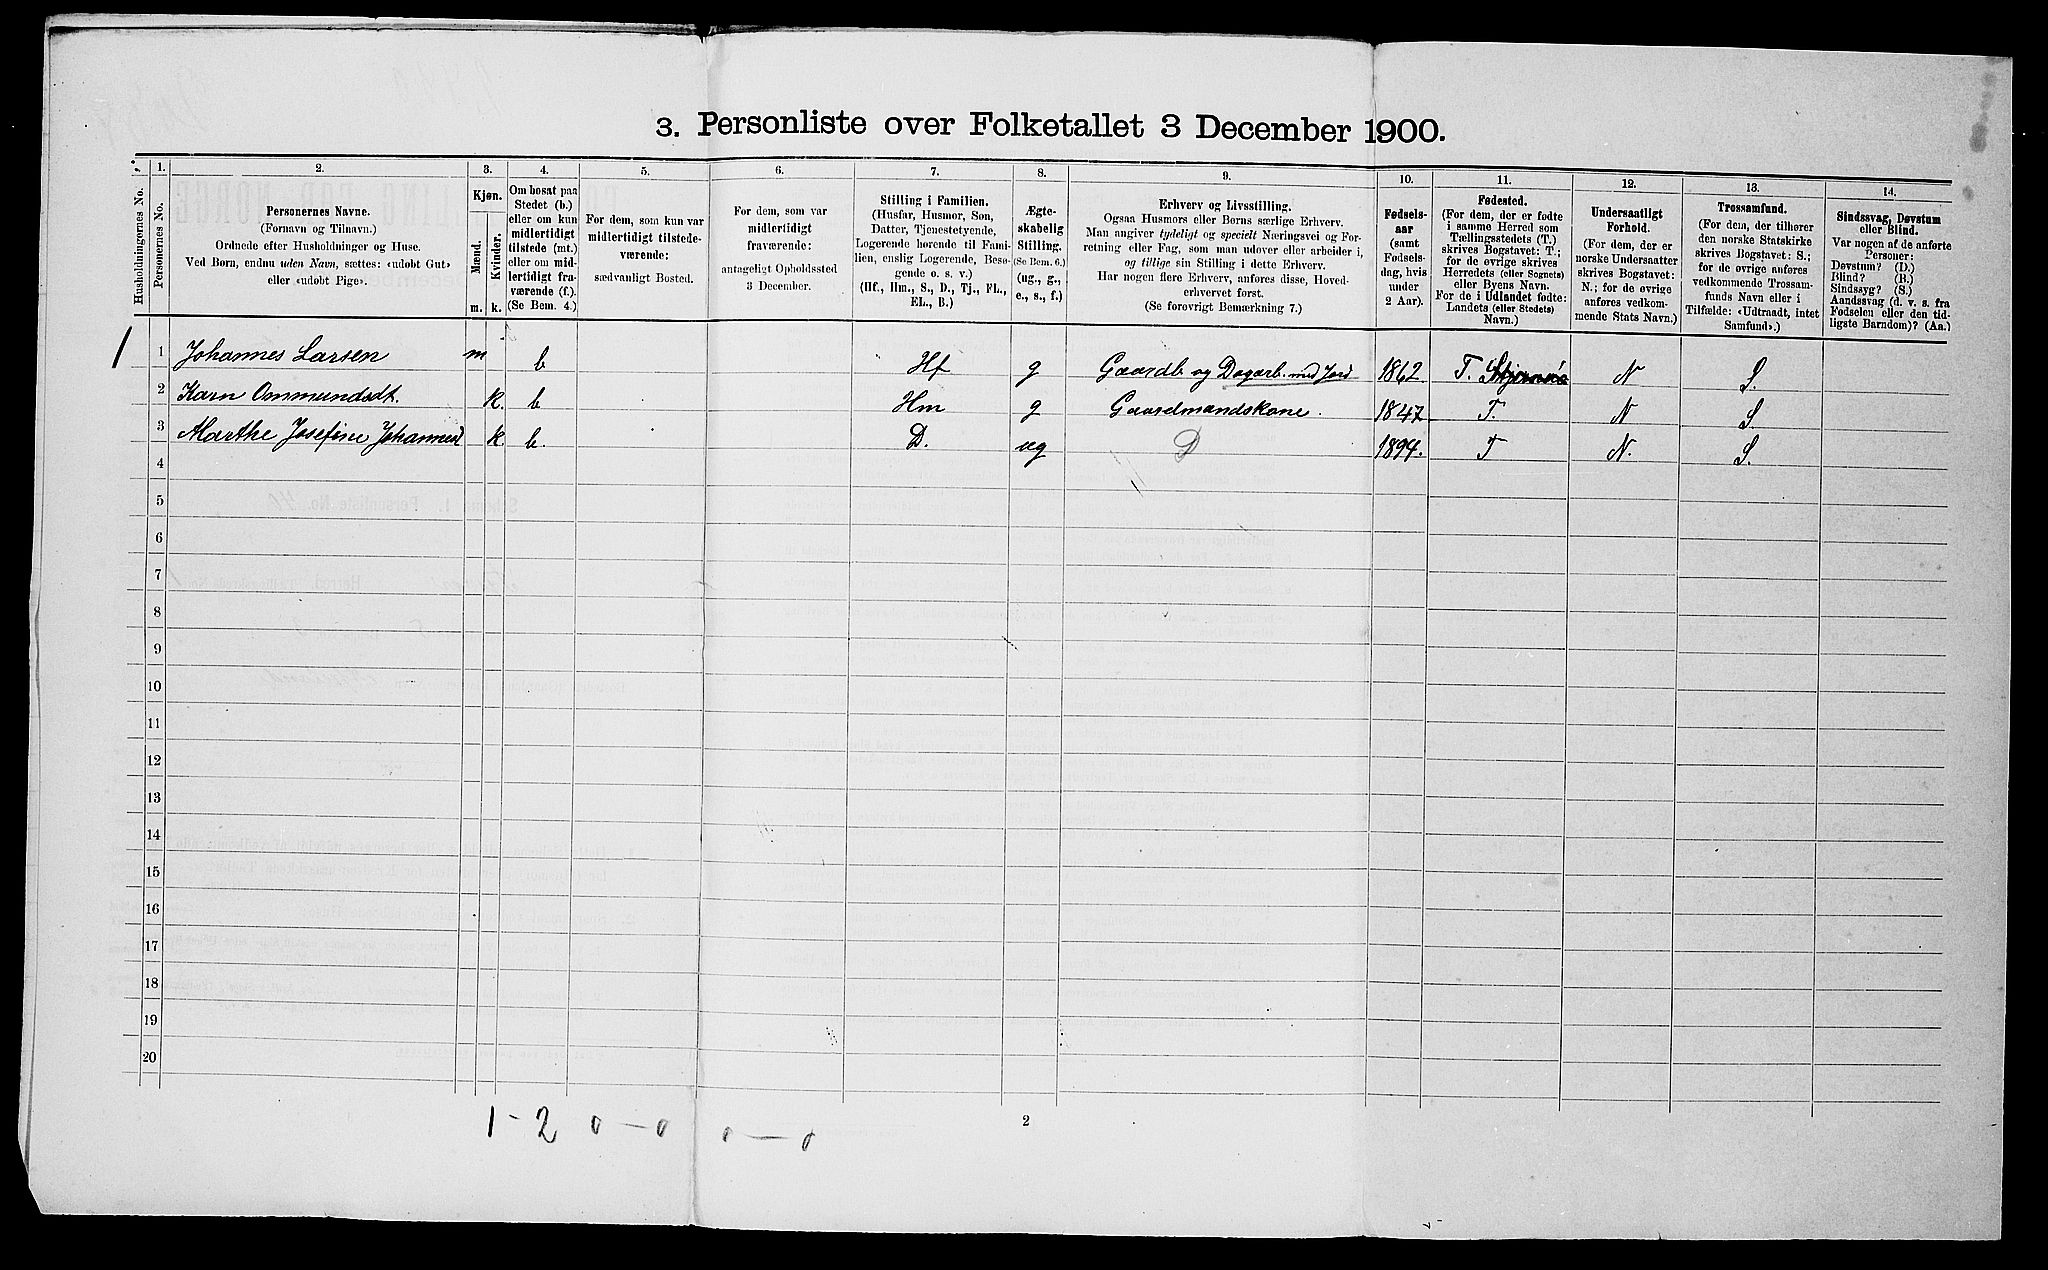 3. Personliste over Folketallet 3 December 1900.
Husholdningernes No.
1.
Personernes No.
2.
Personernes Navne.
(Fornavn og Tilnavn.)
Ordnede efter Husholdninger og Huse.
Ved Børn, endnu uden Navn, sættes: «udøbt Gut»
eller «udøbt Pige».
3.
Kjøn.
Mænd.
Kvinder.
m. k.
4.
Om bosat paa
Stedet (b.)
eller om kun
midlertidigt
tilstede (mt.)
eller om mid-
lertidigt fra-
værende (f.).
(Se Bem. 4.)
5.
For dem, som kun var
midlertidigt tilstede-
værende:
sædvanligt Bosted.
6.
For dem, som var
midlertidigt
fraværende:
antageligt Opholdssted
3 December.
7.
Stilling i Familien.
(Husfar, Husmor, Søn,
Datter, Tjenestetyende,
Logerende hørende til Fami-
lien, enslig Logerende, Besø-
gende o. s. v.)
(Hf., Hm., S., D., Tj., FL.,
EL., B.)
8.
Ægte-
skabelig
Stilling.
(Se Bem. 6.)
(ug., g.,
e., s., f.)
9.
Erhverv og Livsstilling.
Ogsaa Husmors eller Børns særlige Erhverv.
Man angiver tydeligt og specielt Næringsvei og For-
retning eller Fag, som man udøver eller arbeider i,
og tillige sin Stilling i dette Erhverv.
Har nogen flere Erhverv, anføres disse, Hoved-
erhvervet først.
(Se forøvrigt Bemærkning 7.)
10.
Fødsels-
aar
(samt
Fødsels-
dag, hvis
under
2 Aar).
11.
Fødested.
(For dem, der er fødte
i samme Herred som
Tællingsstedets (T.)
skrives Bogstavet: T.;
for de øvrige skrives
Herredets (eller Sognets)
eller Byens Navn.
For de i Udlandet fødte:
Landets (eller Stedets)
Navn.)
12.
Undersaatligt
Forhold.
(For dem, der er
norske Undersaatter
skrives Bogstavet:
N.; for de øvrige
anføres vedkom-
mende Stats Navn.)
13.
Trossamfund.
(For dem, der tilhører
den norske Statskirke
skrives Bogstavet: S.;
for de øvrige anføres
vedkommende Trossam-
funds Navn eller i
Tilfælde: «Udtraadt, intet
Samfund».)
14.
Sindssvag, Døvstum
eller Blind.
Var nogen af de anførte
Personer:
Døvstum? (D.)
Blind? (B.)
Sindssyg? (S.)
Aandssvag (d. v. s. fra
Fødselen eller den tid-
ligste Barndom)? (Aa.)
1 1 Johannes Larsen m b Hf g Gaardb og Dagarb. med Jord 1862 T. N S.
2 Karn Ommundsdt. k. b Hm g Gaardmandskone. 1847 T. N S.
3 Marthe Josefine Johannesd k b. D. ug D 1894. T N. S.
4
5
6
7
8
9
10
11
12
13
14
15
16
17
18
19
20
1 - 2 0 - 0 0 - 0
2